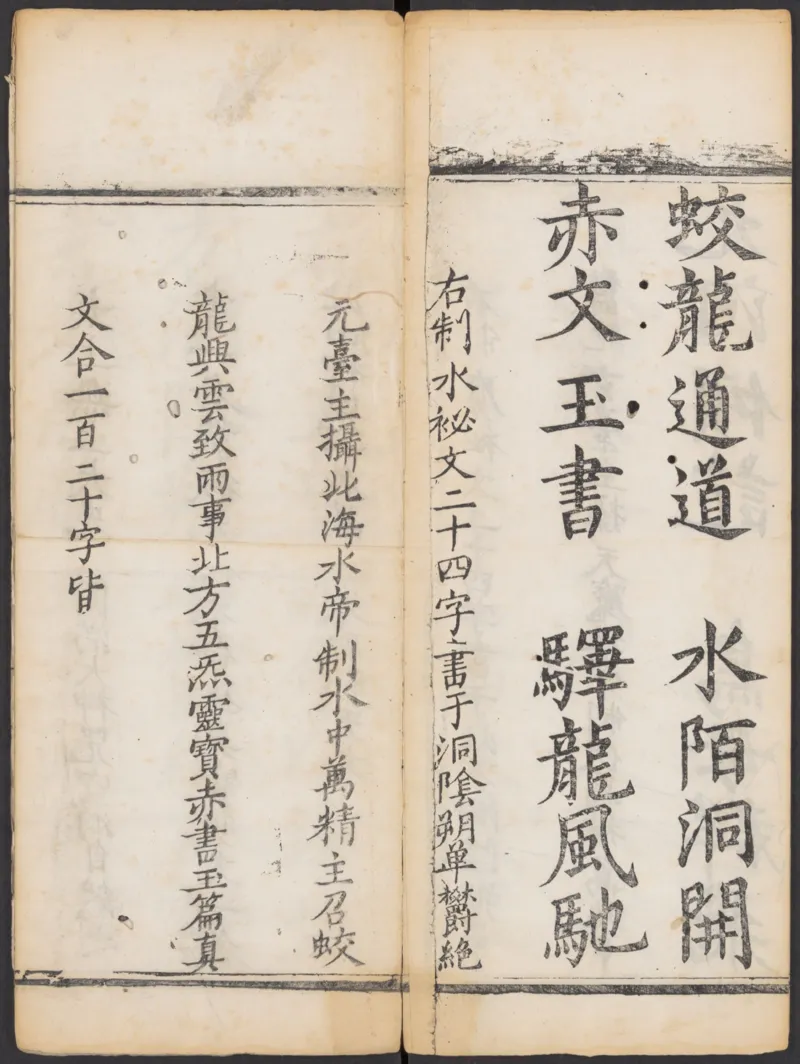 蛟龍通道　水陌洞開
赤文玉書　驛龍風馳
右制水祕文二十四字書于洞陰朔单欝絶
元臺主攝北海水帝制水中萬精主召蛟
龍興雲致雨事北方五炁靈寶赤書玉篇真
文合一百二十字皆